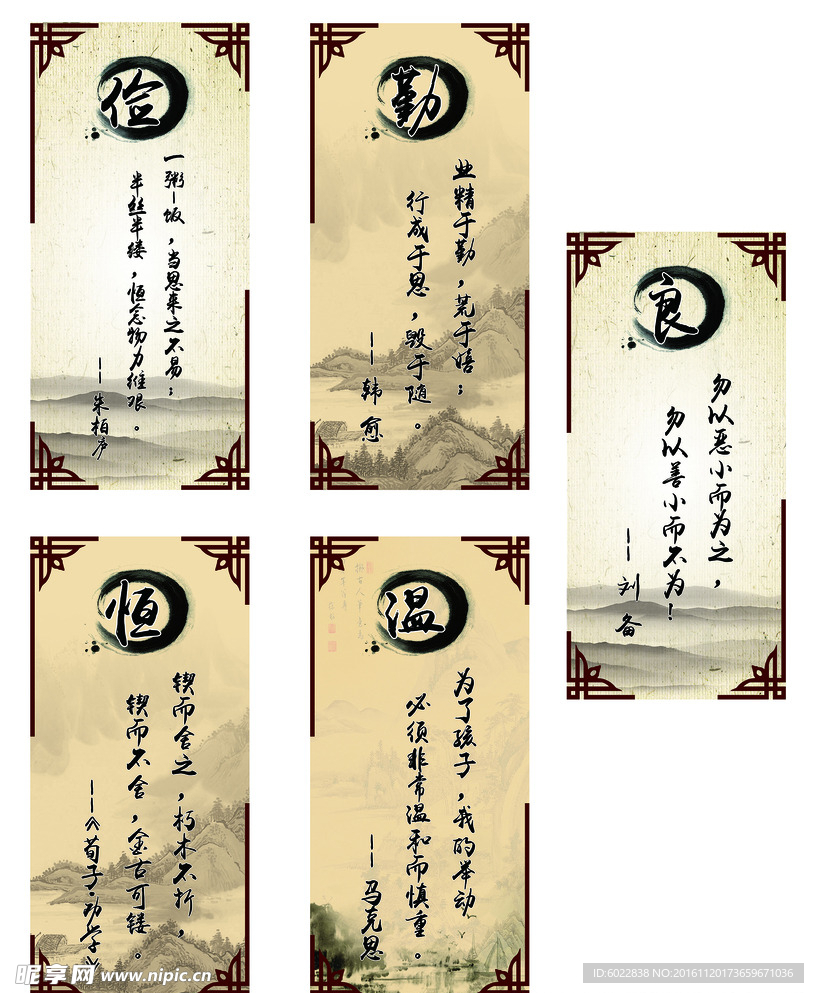 俭
一粥一饭，当思来之不易；
半丝半缕，恒念物力维艰。
——朱柏庐
勤
业精于勤，荒于嬉；
行成于思，毁于随。
——韩愈
良
勿以恶小而为之，
勿以善小而不为！
——刘备
恒
锲而舍之，朽木不折，
锲而不舍，金古可镂。
——《荀子·劝学》
温
为了孩子，我的举动
必须非常温和而慎重。
——马克思
昵享网 www.nipic.cn
ID:6022838 NO:20161120173659671036